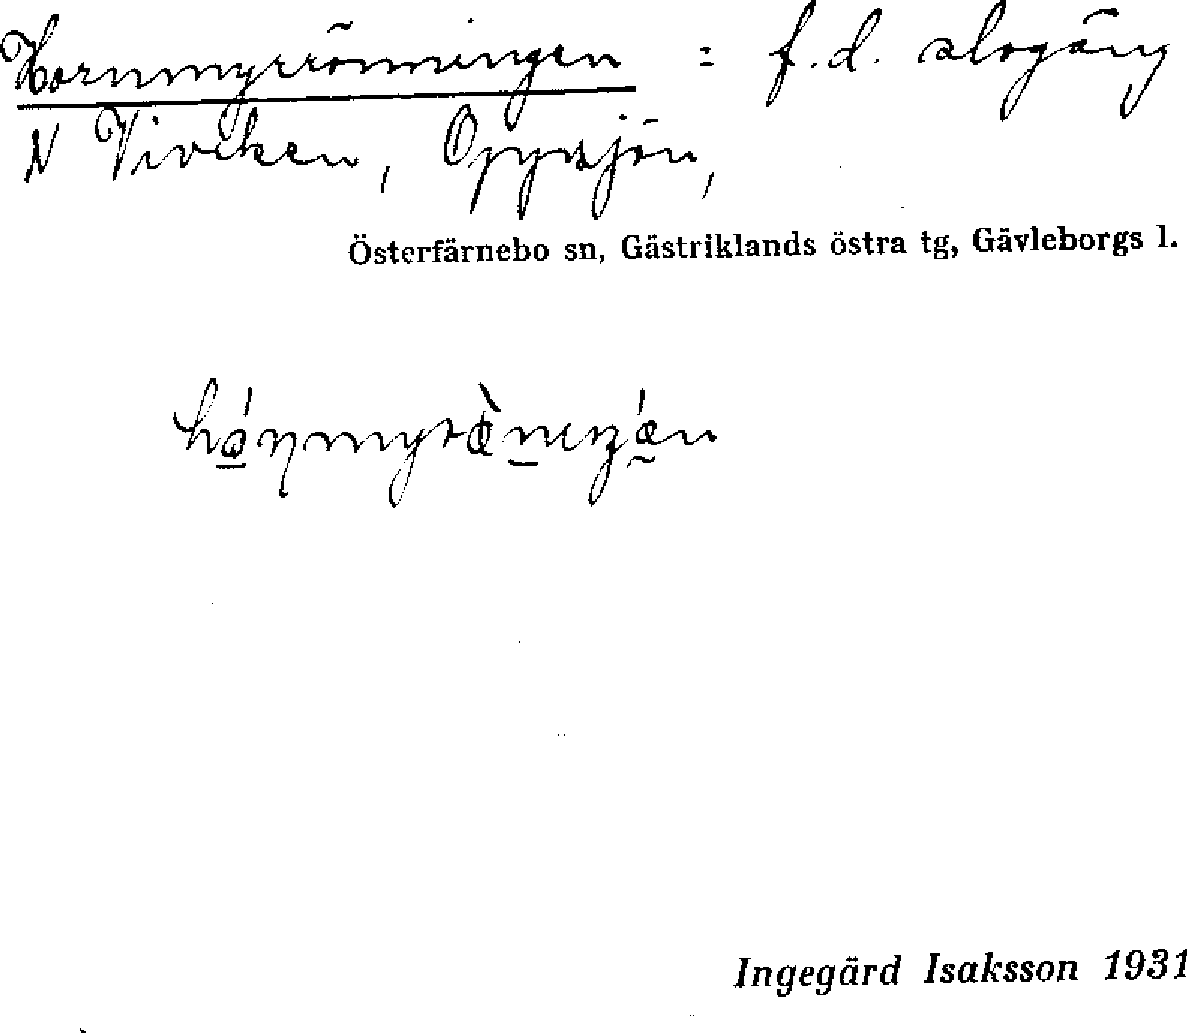 Hornmyrrönningen = f.d. slogäng
N Viviken, Oppsjön,
Österfärnebo sn, Gästriklands östra tg, Gävleborgs l.
Ingegärd Isaksson 1931